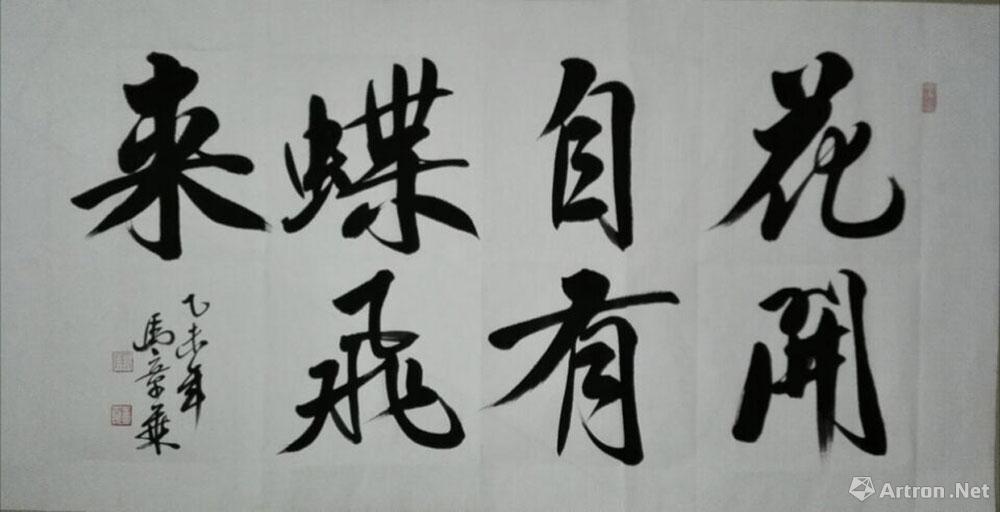 花開
自有
蝶飛
來
乙未年
馬章乗
Artron.Net